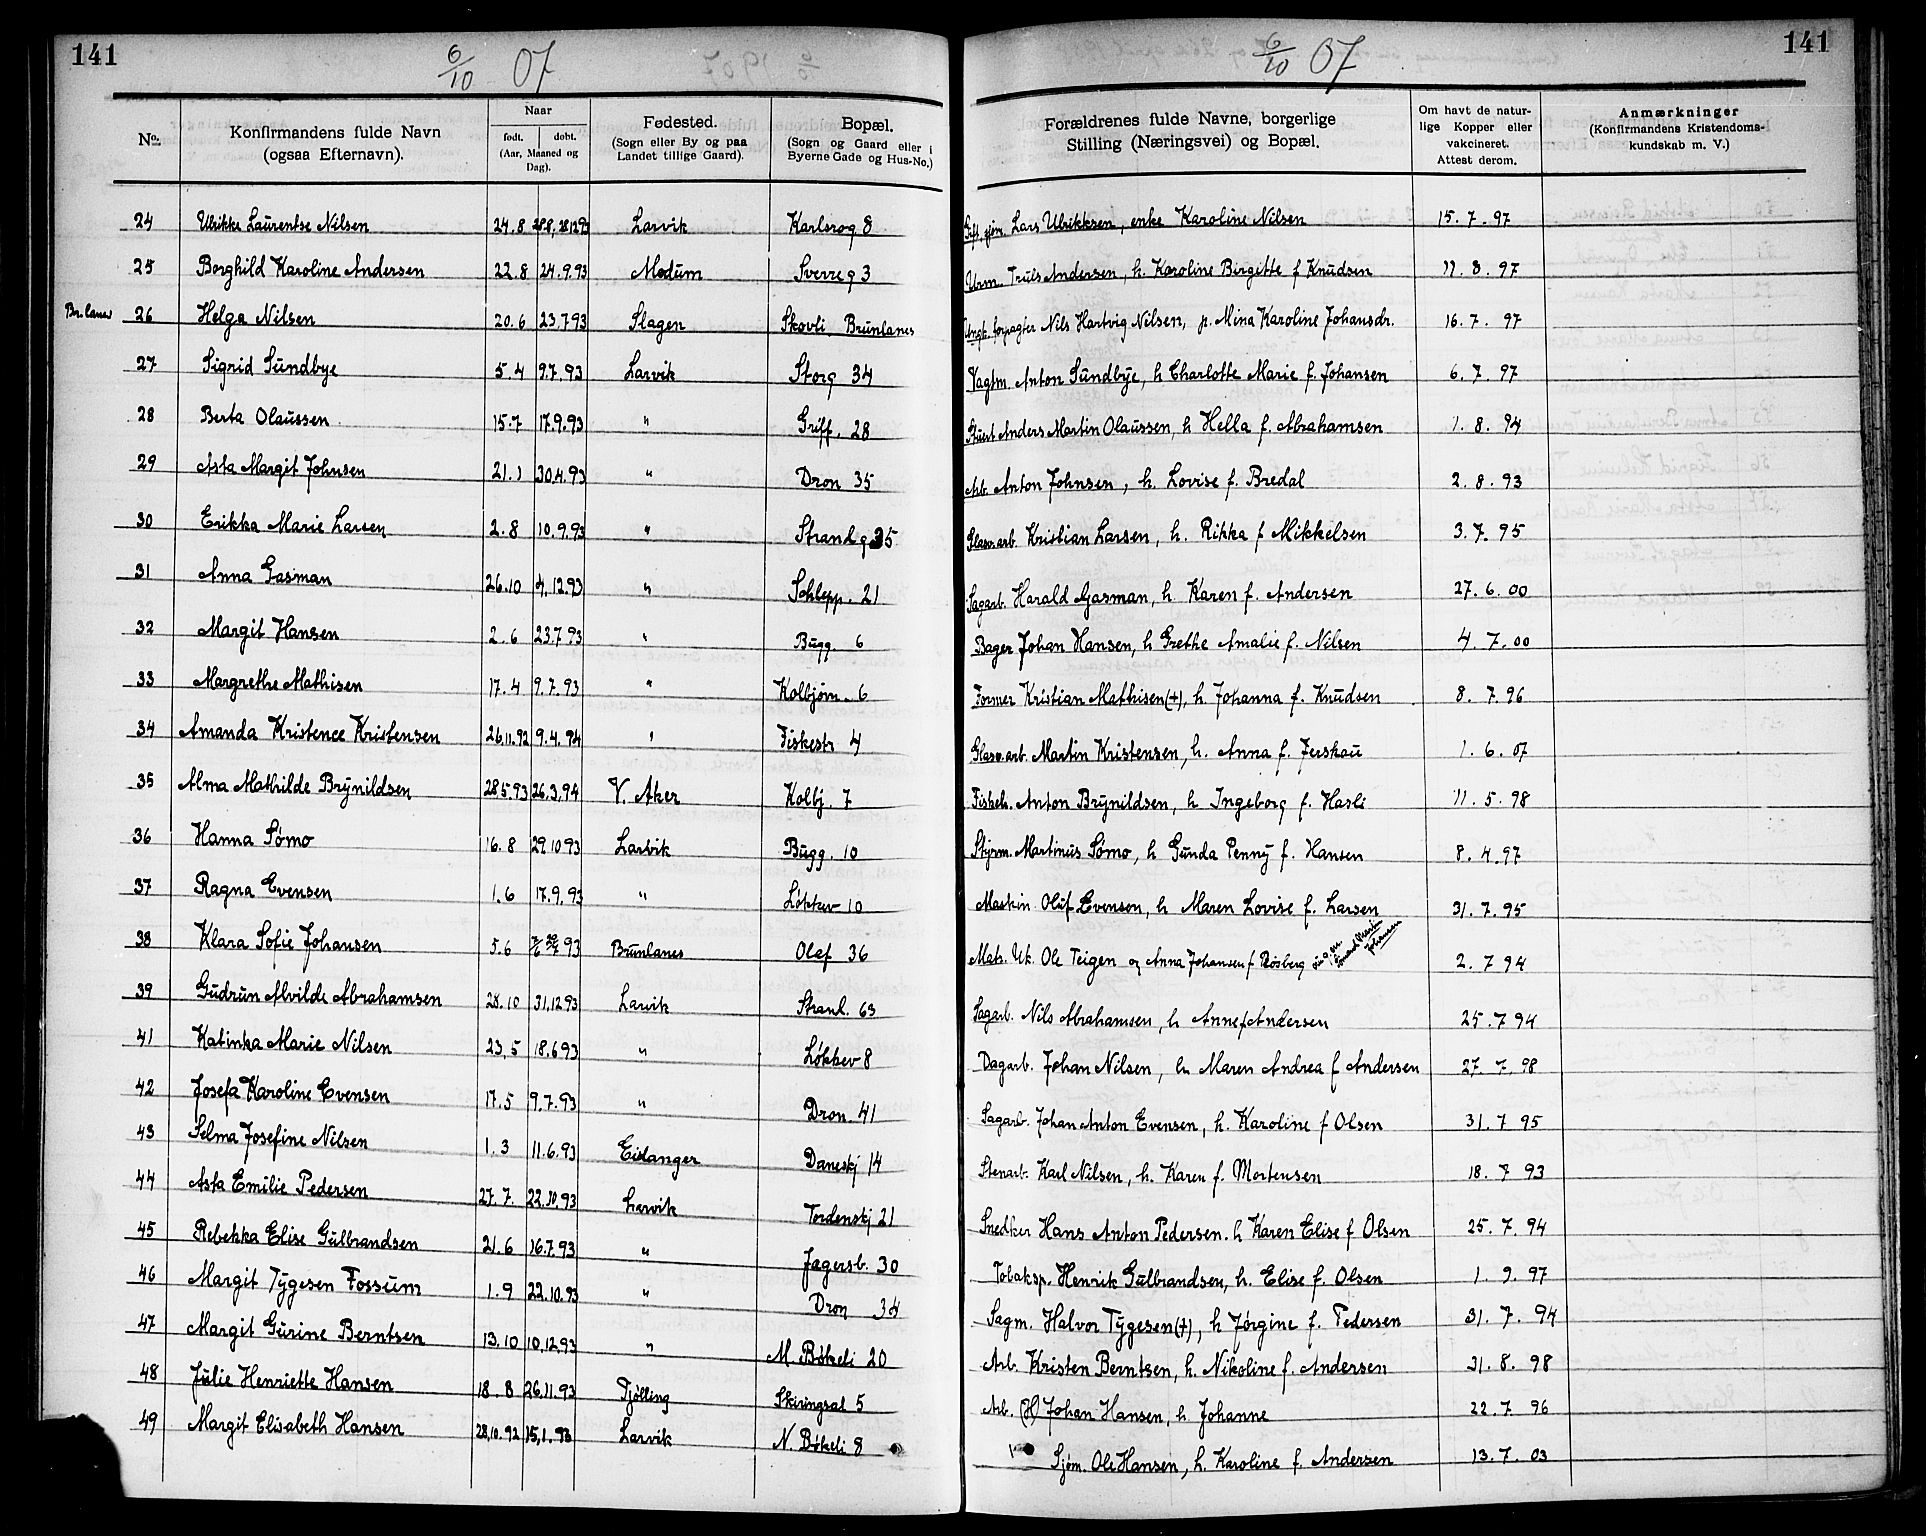 141
6/10 07
No. Konfirmandens fulde Navn (ogsaa Efternavn). Naar født. døbt. (Aar, Maaned og Dag). Fødested. (Sogn eller By og paa Landet tillige Gaard). Bopæl. (Sogn og Gaard eller i Byerne Gade og Hus-No.)
24 Ulrikke Laurentse Nilsen 24.8 Larvik Karlsrog 8
25 Borghild Karoline Andersen 22.8 24.9.93 Modum Sverreg 3
26 Helga Nilsen 20.6 23.7.93 Slagen Skovli, Brunlanes
27 Sigrid Sundbye 5.4 9.7.93 Larvik Storg 34
28 Berta Olaussen 15.7 17.9.93 " Griff. 28
29 Asta Margit Johnsen 21.1 30.4.93 " Dron 35
30 Erikka Marie Larsen 2.8 10.9.93 " Strandg 35
31 Anna Gasman 26.10 4.12.93 " Schlepp. 21
32 Margit Hansen 2.6 23.7.93 " Bugg. 6
33 Margrethe Mathisen 17.4 9.7.93 " Kolbjørn. 6
34 Amanda Kristence Kristensen 26.11.92 9.4.94 " Fiskestr 4
35 Alma Mathilde Brynildsen 28.5.93 26.3.94 V. Aker Kolbj. 7
36 Hanna Sømo 16.8 29.10.93 Larvik Bugg. 10
37 Ragna Evensen 1.6 17.9.93 " Løkkev 10
38 Klara Sofie Johansen 5.6 93 Brunlanes Olaf 36
39 Gudrun Alvilde Abrahamsen 28.10 31.12.93 Larvik Strand. 63
41 Katinka Marie Nilsen 23.5 18.6.93 " Løkkev 8
42 Josefa Karoline Evensen 17.5 9.7.93 " Dron. 41
43 Selma Josefine Nilsen 1.3 11.6.93 Eidanger Daneskj 14
44 Asta Emilie Pedersen 27.7. 22.10.93 Larvik Tordenskj 21
45 Rebekka Elise Gulbrandsen 21.6 16.7.93 " Jagersb. 30
46 Margit Tygesen Fossum 1.9 22.10.93 " Dron 34
47 Margit Gurine Berntsen 13.10 10.12.93 " M. Bøkeli 20
48 Julie Henriette Hansen 18.8 26.11.93 Tjølling Skiringsal 5
49 Margit Elisabeth Hansen 28.10.92 15.1.93 Larvik N. Bøkeli 8
141
6/10 07
Forældrenes fulde Navne, borgerlige Stilling (Næringsvei) og Bopæl. Om havt de naturlige Kopper eller vakcineret. Attest derom. Anmærkninger (Konfirmandens Kristendomskundskab m. V.)
Lars Ulrikksen, enke Karoline Nilsen 15.7.97
Urm. Truls Andersen, h. Karoline Birgitte f Knudsen 11.8.97
forpagter Nils Hartvig Nilsen, p. Mina Karoline Johansdr. 16.7.97
Vagtm. Anton Sundbye, h Charlotte Marie f. Johansen 6.7.97
Stuert Anders Martin Olaussen, h Hella f. Abrahamsen 1.8.94
Arb. Anton Johnsen, h. Lovise f. Bredal 2.8.93
Glasv.arb. Kristian Larsen, h. Rikka f Mikkelsen 3.7.95
Sagarb. Harald Gasman, h Karen f. Andersen 27.6.00
Bager Johan Hansen, h Grethe Amalie f. Nilsen 4.7.00
Former Kristian Mathisen (+), h. Johanna f. Knudsen 8.7.96
Glasv.arb. Martin Kristensen, h. Anna f. Ferskau 1.6.07
Fiskeh. Anton Brynildsen, h Ingeborg f. Hasli 11.5.98
Styrm. Martinus Sømo, h Gunda Penny f. Hansen 8.4.97
Maskin Oluf Evensen, h Maren Lovise f. Larsen 31.7.95
Matr. Uk. Ole Teigen og Anna Johansen f Røsberg Johansen 2.7 94
Sagarb. Nils Abrahamsen, h Anne f Andersen 25.7 94
Dagarb. Johan Nilsen, h Maren Andrea f Andersen 27.7.98
Sagarb. Johan Anton Evensen, h. Karoline f Olsen 31.7 95
Stenarb. Karl Nilsen, h. Karen f. Mortensen 18.7 93
Snedker Hans Anton Pedersen. h Karen Elise f Olsen 25.7.94
Tobaksp. Henrik Gulbrandsen, h. Elise f. Olsen 1.9.97
Sagm. Halvor Tygesen (+), h Jørgine f. Pedersen 31.7.94
Arb. Kristen Berntsen, h. Nikoline f. Andersen 31.8.98
Arb. (H) Johan Hansen, h. Johanne 22.7 96
Sjøm. Ole Hansen, h. Karoline f. Andersen 13.7.03